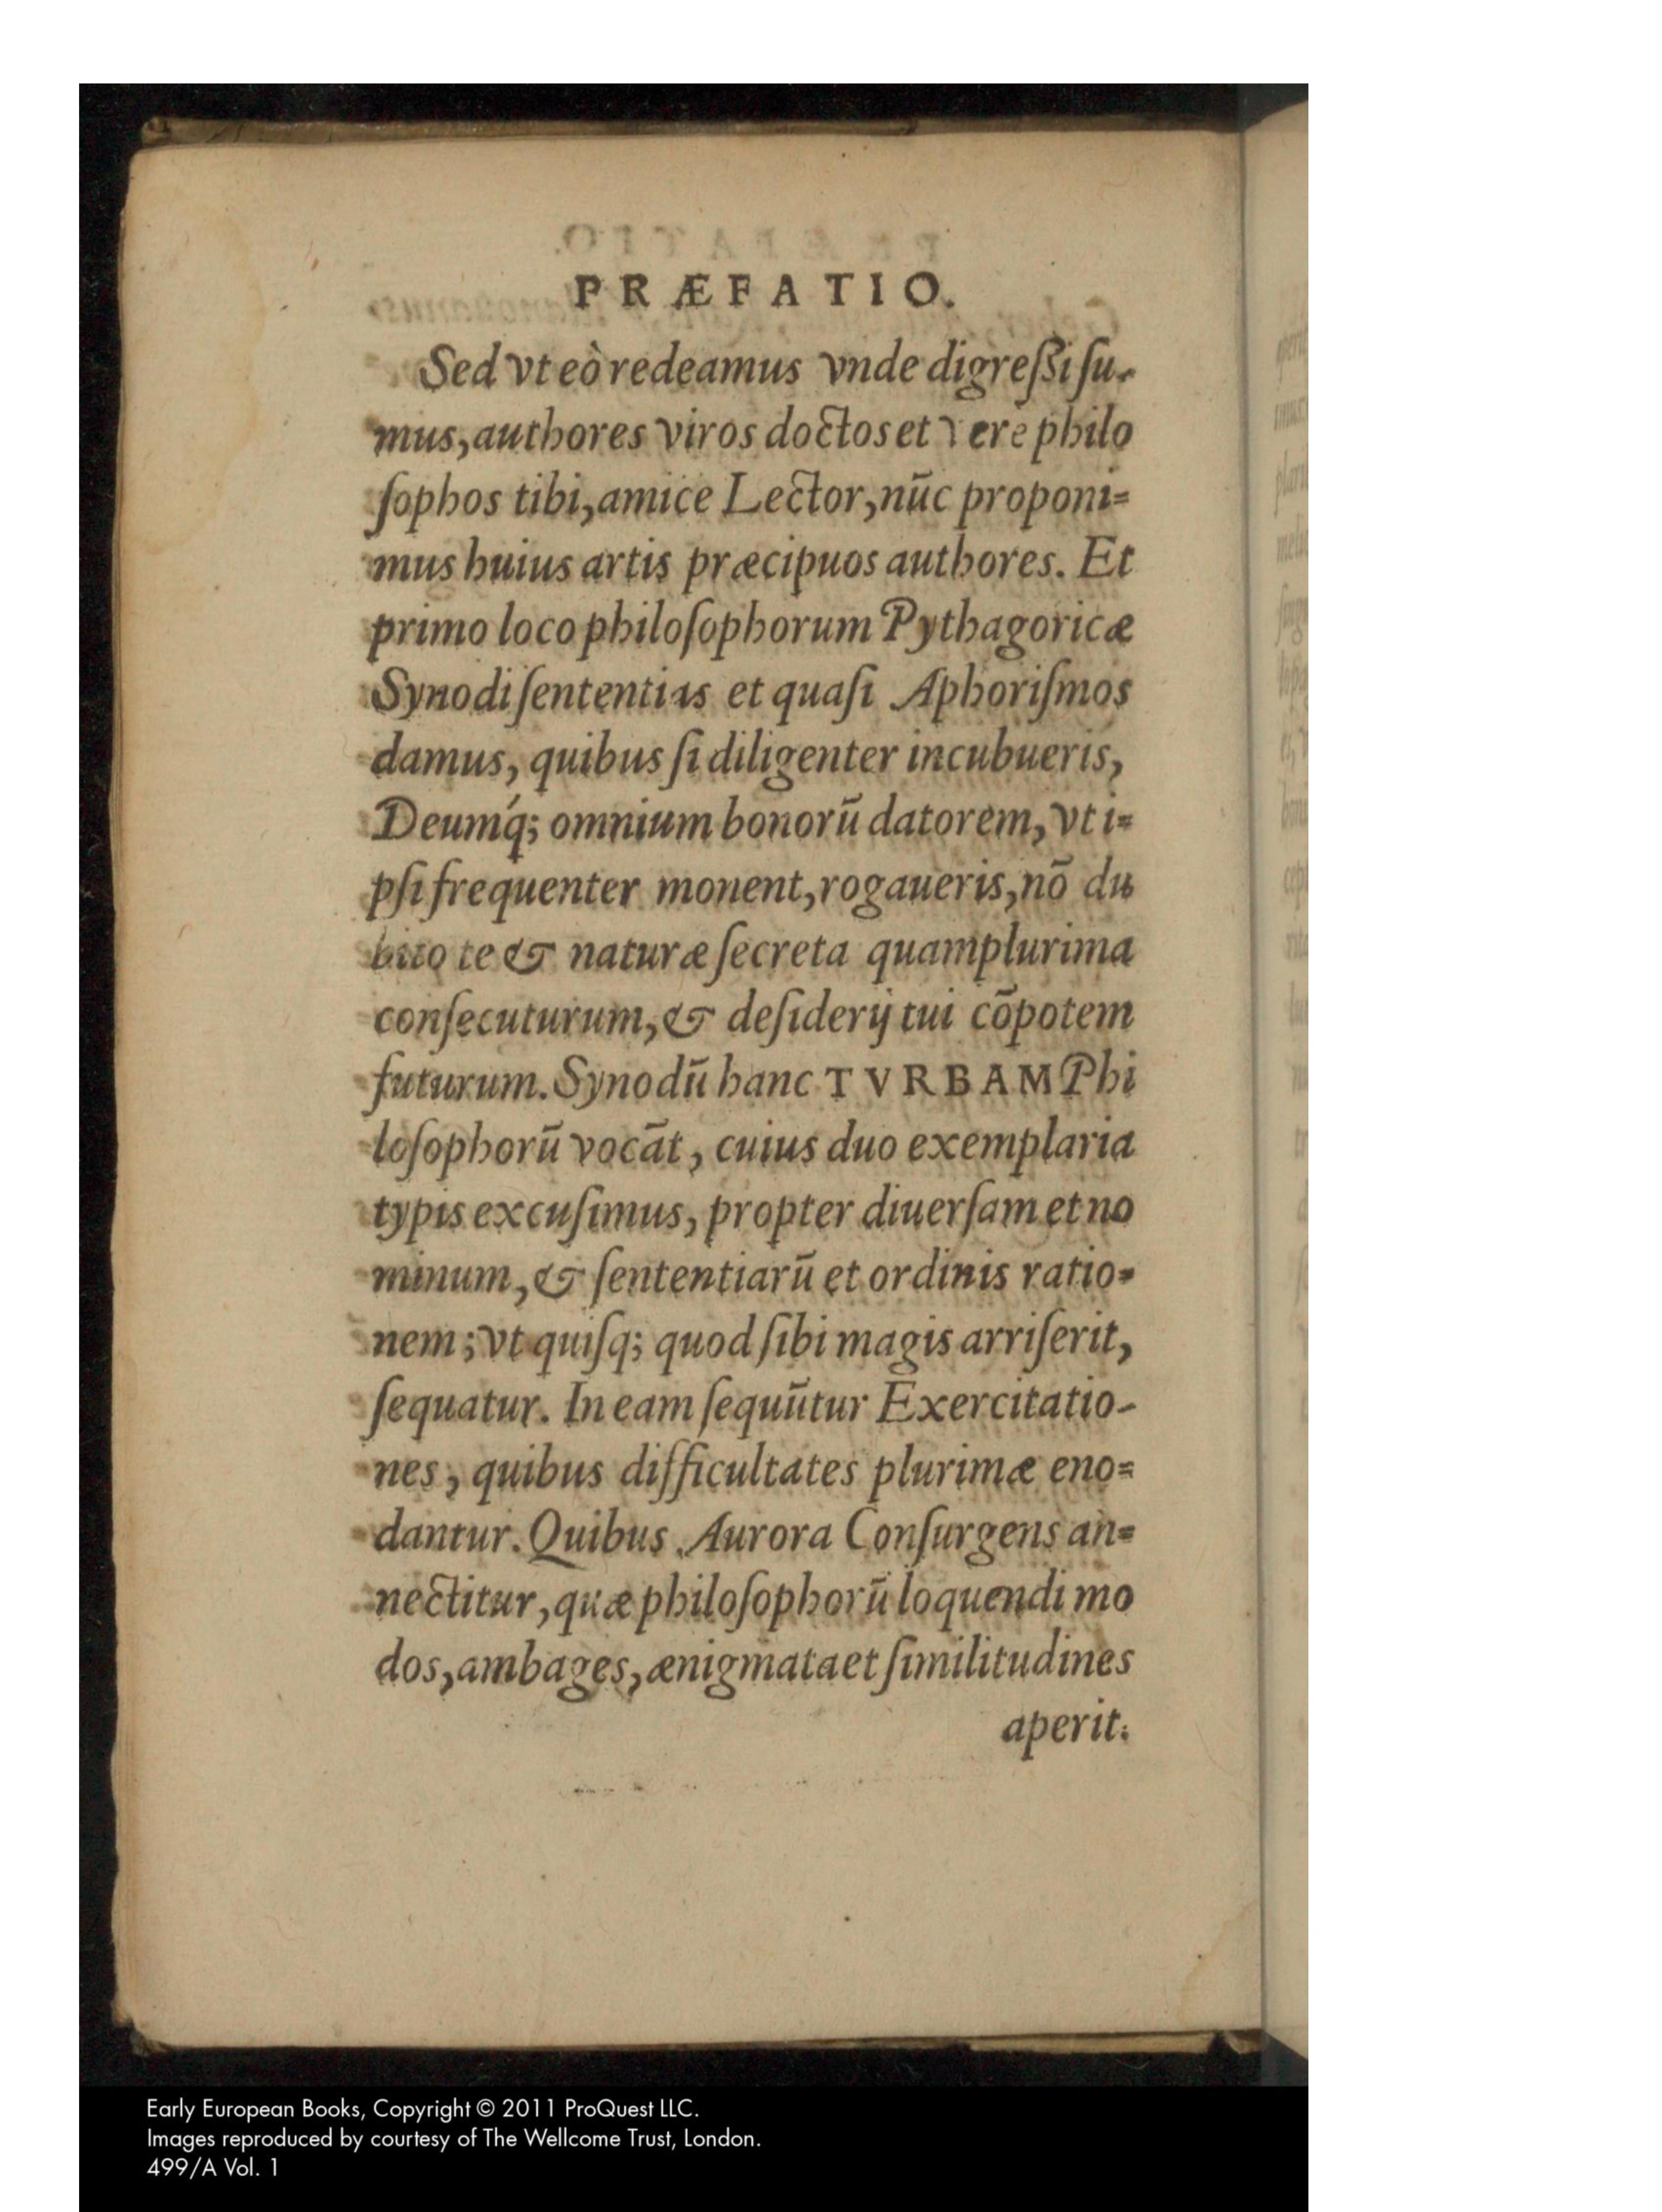 PRÆFATIO.
Sed vt eò redeamus vnde digreßi ſu-
mus, authores viros doctos et verè philo
ſophos tibi, amice Lector, nūc proponi=
mus huius artis præcipuos authores. Et
primo loco philoſophorum Pythagoricæ
Synodi ſententias et quaſi Aphoriſmos
damus, quibus ſi diligenter incubueris,
Deumq́; omnium bonorū datorem, vt i=
pſi frequenter monent, rogaueris, nō du
bito te & naturæ ſecreta quamplurima
conſecuturum, & deſiderij tui cōpotem
futurum. Synodū hanc TVRBAM Phi
loſophorū vocāt, cuius duo exemplaria
typis excuſimus, propter diuerſam et no
minum, & ſententiarū et ordinis ratio=
nem; vt quiſq; quod ſibi magis arriſerit,
ſequatur. In eam ſequūtur Exercitatio-
nes, quibus difficultates plurimæ eno=
dantur. Quibus Aurora Conſurgens an=
nectitur, quæ philoſophorū loquendi mo
dos, ambages, ænigmata et ſimilitudines
aperit:
Early European Books, Copyright © 2011 ProQuest LLC.
Images reproduced by courtesy of The Wellcome Trust, London.
499/A Vol. 1